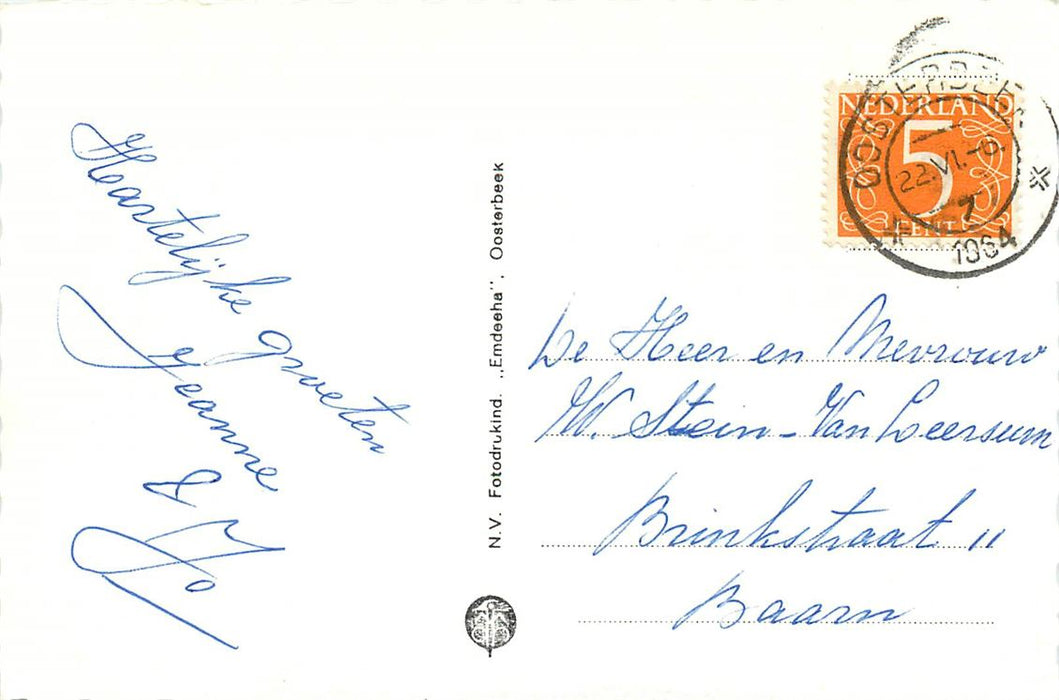 Heartelijke groeten
Jeanne
&
Jo
N.V. Fotodrukind. „Emdeeha”, Oosterbeek
NEDERLAND
5
CENT
OOSTERBEEK
22.VI.-9.
1964
De Heer en Mevrouw
W. Stein-Van Leersum
Brinkstraat 11
Baarn